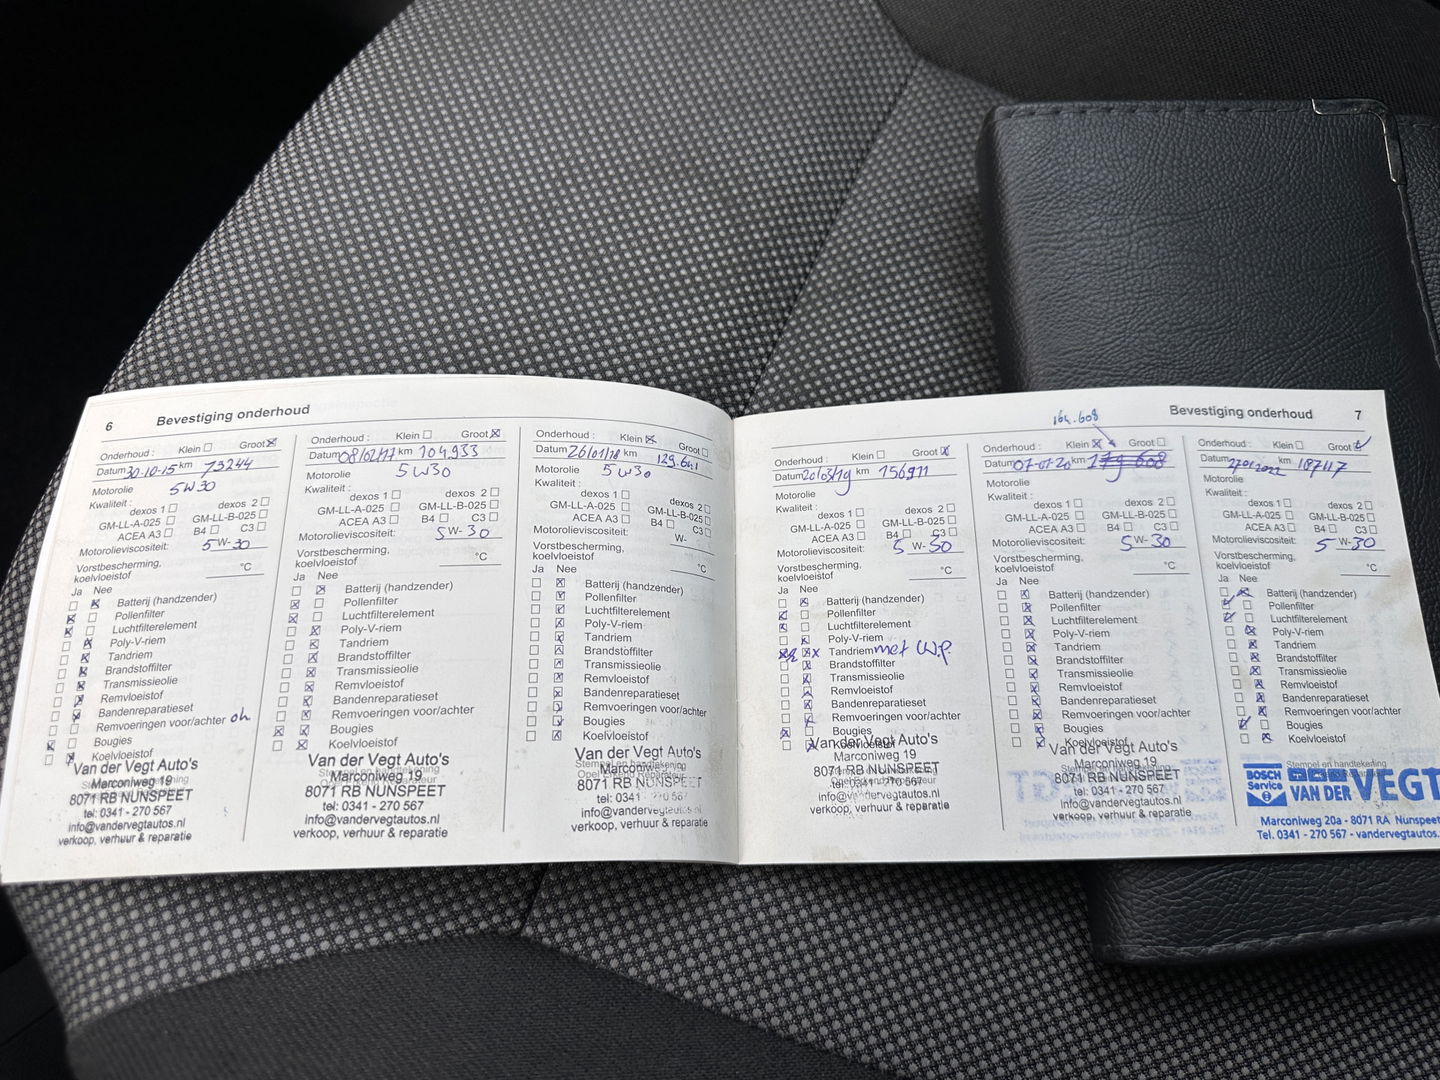 6
Bevestiging onderhoud
Onderhoud : Klein Groot
Datum 30-10-15 km 73244
Motorolie 5W30
Kwaliteit :
dexos 1 dexos 2
GM-LL-A-025 GM-LL-B-025
ACEA A3 B4 C3
Motorolieviscositeit: 5 W-30
Vorstbescherming,
koelvloeistof °C
Ja Nee
Batterij (handzender)
Pollenfilter
Luchtfilterelement
Poly-V-riem
Tandriem
Brandstoffilter
Transmissieolie
Remvloeistof
Bandenreparatieset
Remvoeringen voor/achter oh
Bougies
Koelvloeistof
Van der Vegt Auto's
Marconiweg 19
8071 RB NUNSPEET
tel: 0341 - 270 567
info@vandervegtautos.nl
verkoop, verhuur & reparatie
Onderhoud : Klein Groot
Datum 08/02/17 km 104933
Motorolie 5W30
Kwaliteit :
dexos 1 dexos 2
GM-LL-A-025 GM-LL-B-025
ACEA A3 B4 C3
Motorolieviscositeit: 5 W-30
Vorstbescherming,
koelvloeistof °C
Ja Nee
Batterij (handzender)
Pollenfilter
Luchtfilterelement
Poly-V-riem
Tandriem
Brandstoffilter
Transmissieolie
Remvloeistof
Bandenreparatieset
Remvoeringen voor/achter
Bougies
Koelvloeistof
Van der Vegt Auto's
Marconiweg 19
8071 RB NUNSPEET
tel: 0341 - 270 567
info@vandervegtautos.nl
verkoop, verhuur & reparatie
Onderhoud : Klein Groot
Datum 26/01/18 km 129.641
Motorolie 5W30
Kwaliteit :
dexos 1 dexos 2
GM-LL-A-025 GM-LL-B-025
ACEA A3 B4 C3
Motorolieviscositeit: W-
Vorstbescherming,
koelvloeistof °C
Ja Nee
Batterij (handzender)
Pollenfilter
Luchtfilterelement
Poly-V-riem
Tandriem
Brandstoffilter
Transmissieolie
Remvloeistof
Bandenreparatieset
Remvoeringen voor/achter
Bougies
Koelvloeistof
Stempel en handtekening
Van der Vegt Auto's
Marconiweg 19
8071 RB NUNSPEET
tel: 0341 - 270 567
info@vandervegtautos.nl
verkoop, verhuur & reparatie
Bevestiging onderhoud
7
Onderhoud : Klein Groot
Datum 20/03/19 km 156911
Motorolie
Kwaliteit :
dexos 1 dexos 2
GM-LL-A-025 GM-LL-B-025
ACEA A3 B4 C3
Motorolieviscositeit: 5 W-30
Vorstbescherming,
koelvloeistof °C
Ja Nee
Batterij (handzender)
Pollenfilter
Luchtfilterelement
Poly-V-riem
Tandriem met W.P
Brandstoffilter
Transmissieolie
Remvloeistof
Bandenreparatieset
Remvoeringen voor/achter
Bougies
Koelvloeistof
Van der Vegt Auto's
Marconiweg 19
8071 RB NUNSPEET
tel: 0341 - 270 567
info@vandervegtautos.nl
verkoop, verhuur & reparatie
164.608
Onderhoud : Klein Groot
Datum 07-01-20 km 179 608
Motorolie
Kwaliteit :
dexos 1 dexos 2
GM-LL-A-025 GM-LL-B-025
ACEA A3 B4 C3
Motorolieviscositeit: 5 W-30
Vorstbescherming,
koelvloeistof °C
Ja Nee
Batterij (handzender)
Pollenfilter
Luchtfilterelement
Poly-V-riem
Tandriem
Brandstoffilter
Transmissieolie
Remvloeistof
Bandenreparatieset
Remvoeringen voor/achter
Bougies
Koelvloeistof
Van der Vegt Auto's
Marconiweg 19
8071 RB NUNSPEET
tel: 0341 - 270 567
info@vandervegtautos.nl
verkoop, verhuur & reparatie
Onderhoud : Klein Groot
Datum 27012022 km 187117
Motorolie
Kwaliteit :
dexos 1 dexos 2
GM-LL-A-025 GM-LL-B-025
ACEA A3 B4 C3
Motorolieviscositeit: 5 W-30
Vorstbescherming,
koelvloeistof °C
Ja Nee
Batterij (handzender)
Pollenfilter
Luchtfilterelement
Poly-V-riem
Tandriem
Brandstoffilter
Transmissieolie
Remvloeistof
Bandenreparatieset
Remvoeringen voor/achter
Bougies
Koelvloeistof
Stempel en handtekening
BOSCH
Service
VAN DER VEGT
Marconiweg 20a - 8071 RA Nunspeet
Tel. 0341 - 270 567 - vandervegtautos.